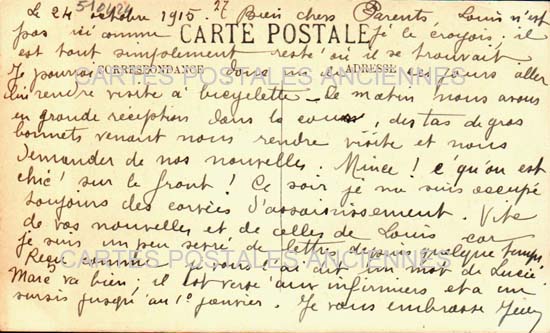 Le 24 octobre 1915. 27 Bien chers Parents, Louis n'est
pas ici comme je le croyais, il
CARTE POSTALE
est tout simplement resté où il se trouvait
Je pourrai donc un de ces jours aller
CORRESPONDANCE ADRESSE
CARTES POSTALES ANCIENNES
lui rendre visite à bicyclette – Ce matin nous avons
en grande réception dans la cour, des tas de gros
bonnets venant nous rendre visite et nous
demander de nos nouvelles. Mince ! c'qu'on est
chic sur le front ! Ce soir je me suis occupé
toujours des corvées d'assainissement. Vite
de vos nouvelles et de celles de Louis car
je suis un peu sevré de lettre depuis quelque temps
CARTES POSTALES ANCIENNES
Reçu comme je vous l'ai dit un mot de Lucie.
Marc va bien, il est versé aux infirmiers et a un
sursis jusqu'au 1er janvier. Je vous embrasse